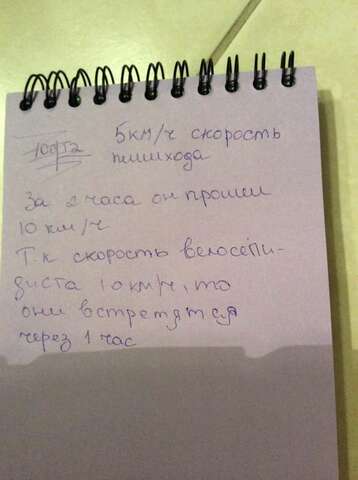 5км/ч скорость
пешехода
За 2 часа он прошел
10 км/ч
Т.к скорость велосепи-
диста 10 км/ч, то
они встретятся
через 1 час